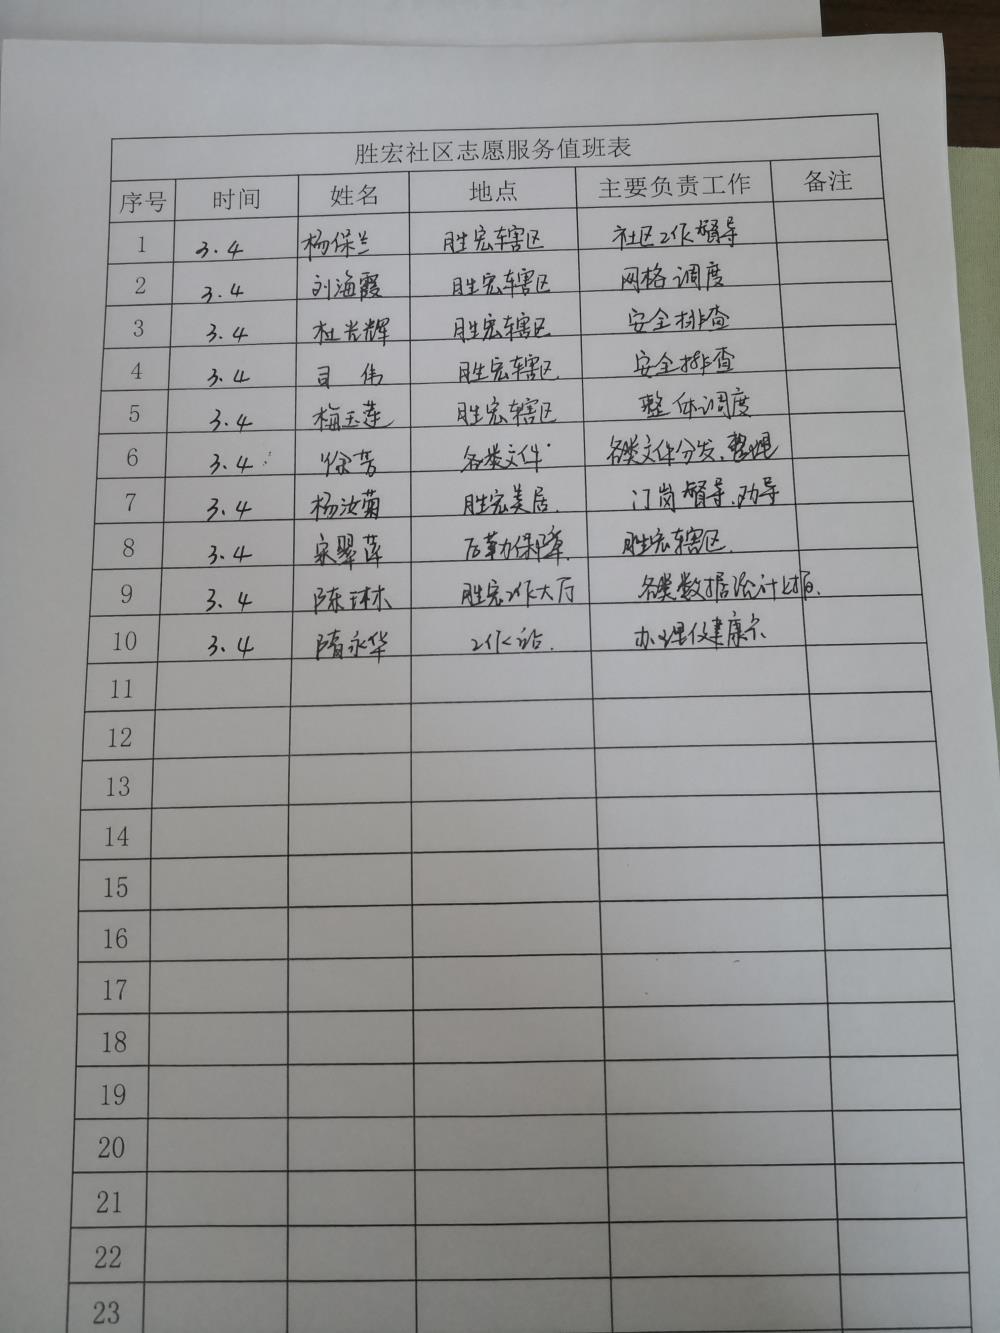 胜宏社区志愿服务值班表
序号 时间 姓名 地点 主要负责工作 备注
1 3.4 杨保兰 胜宏辖区 社区工作督导
2 3.4 刘海霞 胜宏辖区 网格调度
3 3.4 杜光辉 胜宏辖区 安全排查
4 3.4 司伟 胜宏辖区 安全排查
5 3.4 梅玉莲 胜宏辖区 整体调度
6 3.4 徐芳 各类文件 各类文件分发、整理
7 3.4 杨汝菊 胜宏美居 门岗督导、劝导
8 3.4 宋翠萍 后勤保障 胜宏辖区
9 3.4 陈琳 胜宏工作大厅 各类数据统计上报
10 3.4 隋永华 工作站 办理健康卡
11
12
13
14
15
16
17
18
19
20
21
22
23